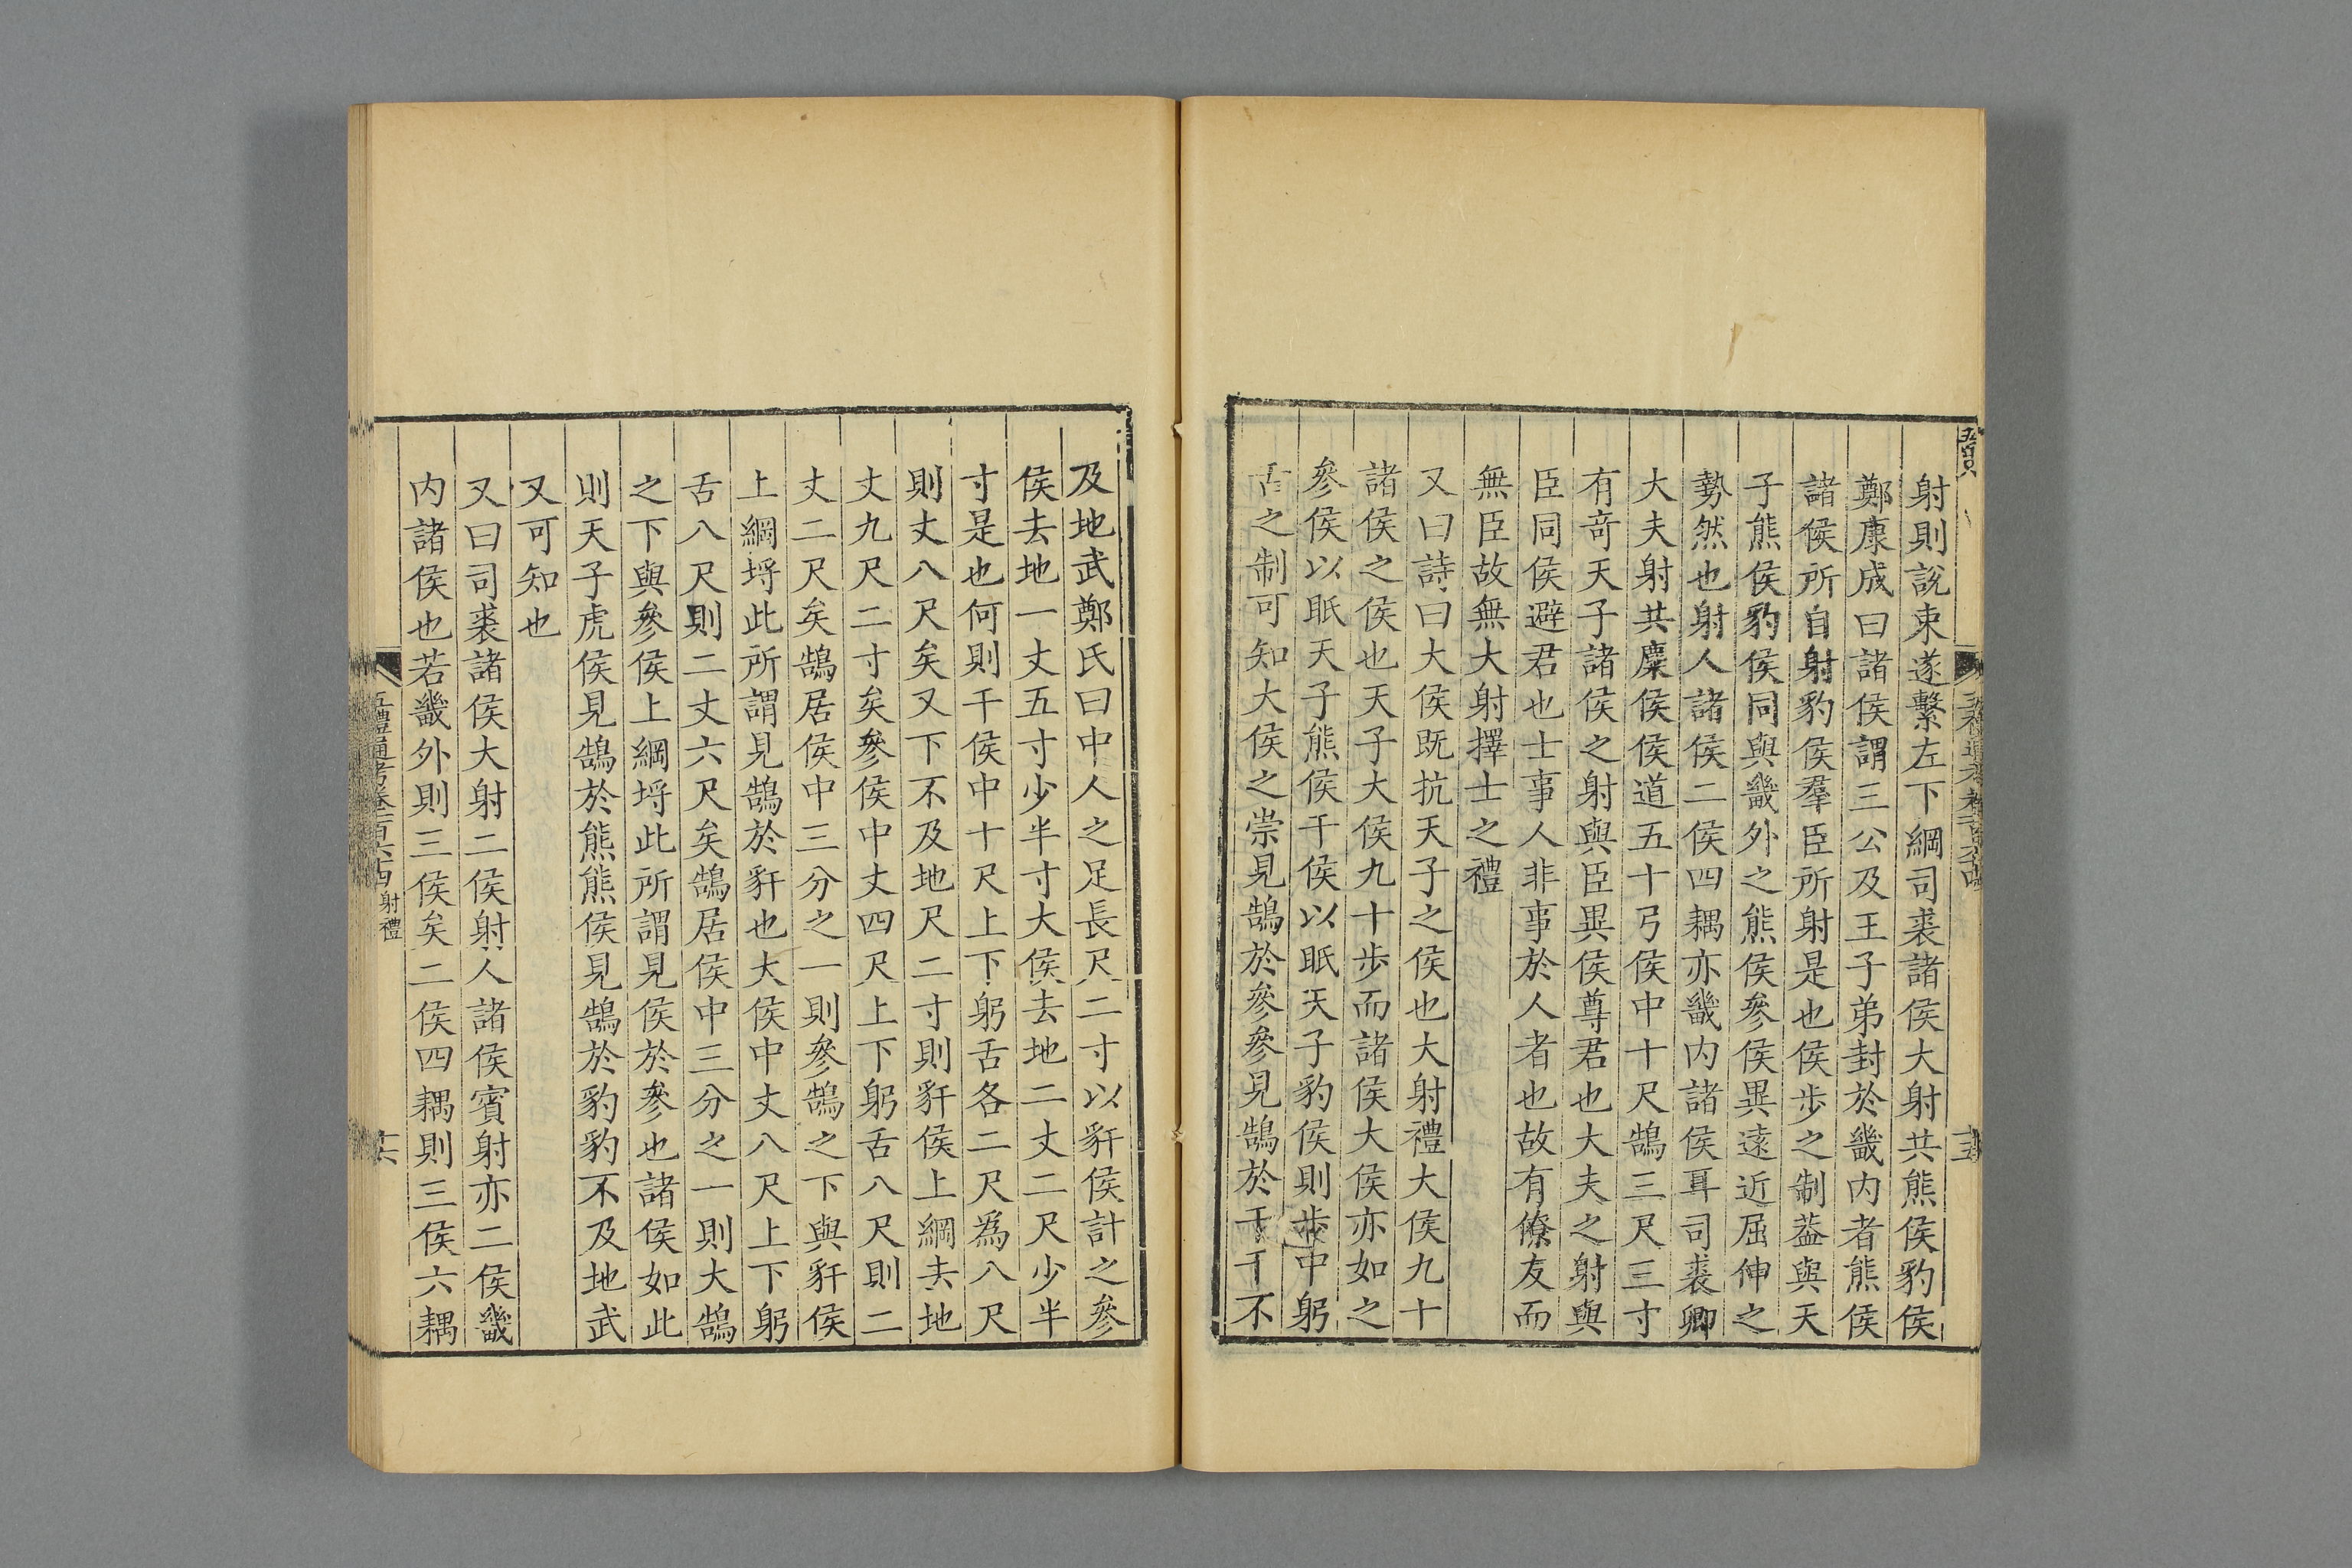 射則說束遂繫左下綱司裘諸侯大射共熊侯豹侯
鄭康成曰諸侯謂三公及王子弟封於畿内者熊侯
諸侯所自射豹侯羣臣所射是也侯步之制葢與天
子熊侯豹侯同與畿外之熊侯參侯異遠近屈伸之
勢然也射人諸侯二侯四耦亦畿内諸侯耳司裘卿
大夫射共麋侯侯道五十弓侯中十尺鵠三尺三寸
有竒天子諸侯之射與臣異侯尊君也大夫之射與
臣同侯避君也士事人非事於人者也故有僚友而
無臣故無大射擇士之禮
又曰詩曰大侯既抗天子之侯也大射禮大侯九十
諸侯之侯也天子大侯九十步而諸侯大侯亦如之
參侯以眂天子熊侯干侯以眂天子豹侯則步中躬
舌之制可知大侯之崇見鵠於參參見鵠於干干不
及地武鄭氏曰中人之足長尺二寸以豻侯計之參
侯去地一丈五寸少半寸大侯去地二丈二尺少半
寸是也何則干侯中十尺上下躬舌各二尺爲八尺
則丈八尺矣又下不及地尺二寸則豻侯上綱去地
丈九尺二寸矣參侯中丈四尺上下躬舌八尺則二
丈二尺矣鵠居侯中三分之一則參鵠之下與豻侯
上綱埓此所謂見鵠於豻也大侯中丈八尺上下躬
舌八尺則二丈六尺矣鵠居侯中三分之一則大鵠
之下與參侯上綱埓此所謂見侯於參也諸侯如此
則天子虎侯見鵠於熊熊侯見鵠於豹豹不及地武
又可知也
又曰司裘諸侯大射二侯射人諸侯賓射亦二侯畿
内諸侯也若畿外則三侯矣二侯四耦則三侯六耦
五禮通考卷一百六十四 射禮
十六